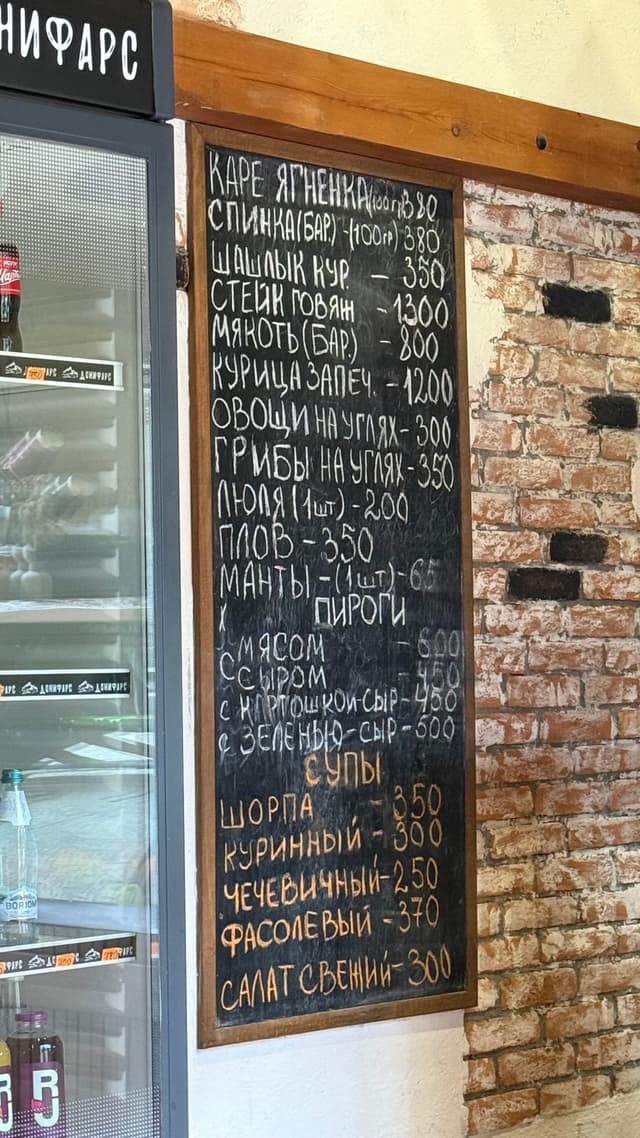 НИФАРС
КАРЕ ЯГНЕНКА(100гр)380
СПИНКА(БАР.)-(100гр) 380
ШАШЛЫК КУР. - 350
СТЕЙК ГОВЯЖ - 1300
МЯКОТЬ(БАР.) - 800
КУРИЦА ЗАПЕЧ. - 1200
ОВОЩИ НА УГЛЯХ - 300
ГРИБЫ НА УГЛЯХ - 350
ЛЮЛЯ (1шт) - 200
ПЛОВ - 350
МАНТЫ - (1шт) - 65
ПИРОГИ
С МЯСОМ - 600
С СЫРОМ - 450
С КАРТОШКОЙ-СЫР - 450
С ЗЕЛЕНЬЮ-СЫР - 500
СУПЫ
ШОРПА - 350
КУРИННЫЙ - 300
ЧЕЧЕВИЧНЫЙ - 250
ФАСОЛЕВЫЙ - 370
САЛАТ СВЕЖИЙ - 300
ДОНИФАРС
ДОНИФАРС
BORJOMI
RJ